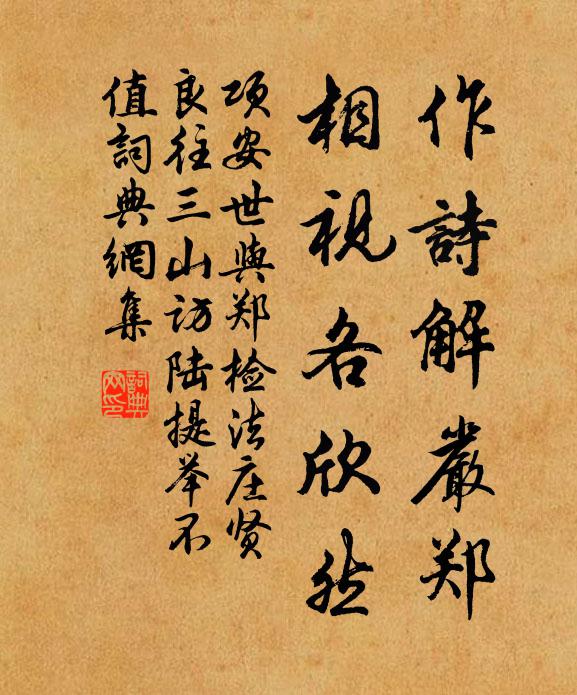 作詩解嚴郑
相視各欣然
项安世與郑检法庄贤
良往三山访陆提举不
值詞典網集
詞典
网印